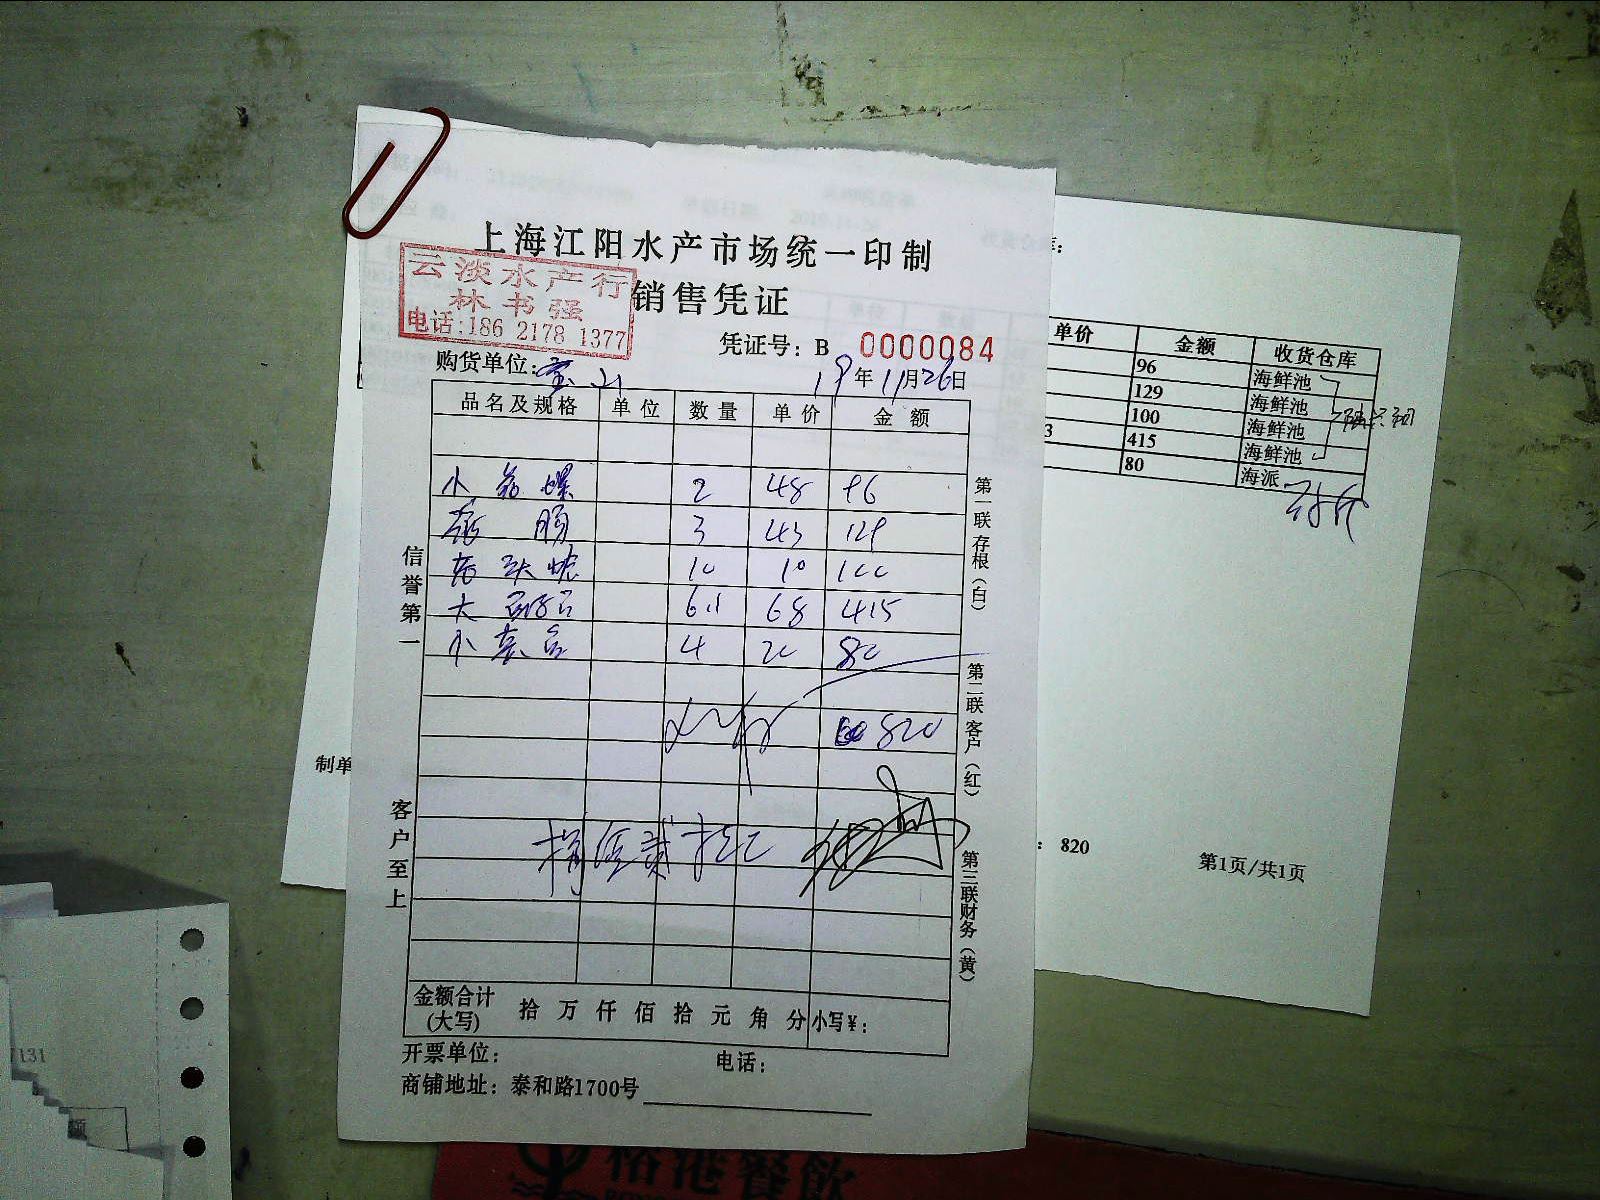 上海江阳水产市场统一印制
云淡水产行
林书强
电话:186 2178 1377
销售凭证
凭证号: B 0000084
购货单位: 宝山
19年11月26日
品名及规格 单位 数量 单价 金额
小 螺 2 48 96
3 43 129
10 10 100
大 6.1 68 415
小 4 20 80
820
信誉第一
客户至上
第一联存根(白)
第二联客户(红)
第三联财务(黄)
金额合计(大写) 拾 万 仟 佰 拾 元 角 分 小写¥:
开票单位: 电话:
商铺地址: 泰和路1700号
单价 金额 收货仓库
96 海鲜池
129 海鲜池
100 海鲜池
3 415 海鲜池
80 海派
制单
: 820
第1页/共1页
7131
额
裕港餐飲